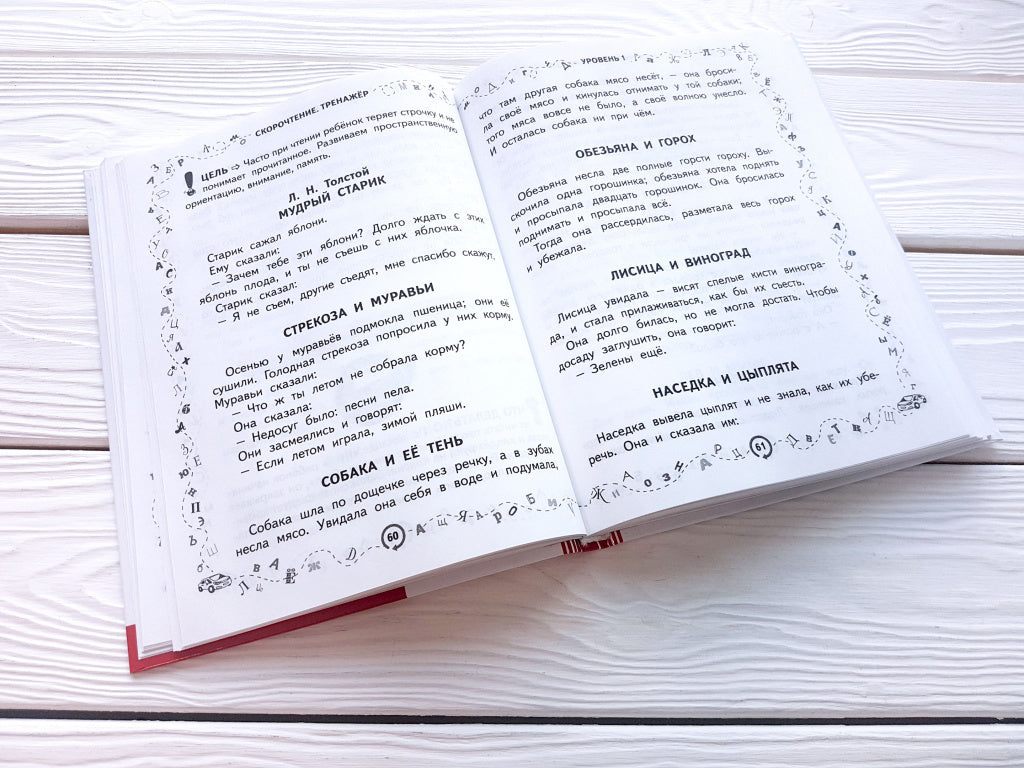 СКОРОЧТЕНИЕ. ТРЕНАЖЁР
ЦЕЛЬ ⇨ Часто при чтении ребёнок теряет строчку и не
понимает прочитанное. Развиваем пространственную
ориентацию, внимание, память.
Л. Н. Толстой
МУДРЫЙ СТАРИК
Старик сажал яблони.
Ему сказали:
– Зачем тебе эти яблони? Долго ждать с этих
яблонь плода, и ты не съешь с них яблочка.
Старик сказал:
– Я не съем, другие съедят, мне спасибо скажут.
СТРЕКОЗА И МУРАВЬИ
Осенью у муравьёв подмокла пшеница; они её
сушили. Голодная стрекоза попросила у них корму.
Муравьи сказали:
– Что ж ты летом не собрала корму?
Она сказала:
– Недосуг было: песни пела.
Они засмеялись и говорят:
– Если летом играла, зимой пляши.
СОБАКА И ЕЁ ТЕНЬ
Собака шла по дощечке через речку, а в зубах
несла мясо. Увидала она себя в воде и подумала,
60
УРОВЕНЬ 1
что там другая собака мясо несёт, – она броси-
ла своё мясо и кинулась отнимать у той собаки;
того мяса вовсе не было, а своё волною унесло.
И осталась собака ни при чём.
ОБЕЗЬЯНА И ГОРОХ
Обезьяна несла две полные горсти гороху. Вы-
скочила одна горошинка; обезьяна хотела поднять
и просыпала двадцать горошинок. Она бросилась
поднимать и просыпала всё.
Тогда она рассердилась, разметала весь горох
и убежала.
ЛИСИЦА И ВИНОГРАД
Лисица увидала – висят спелые кисти виногра-
да, и стала прилаживаться, как бы их съесть.
Она долго билась, но не могла достать. Чтобы
досаду заглушить, она говорит:
– Зелены ещё.
НАСЕДКА И ЦЫПЛЯТА
Наседка вывела цыплят и не знала, как их убе-
речь. Она и сказала им:
61